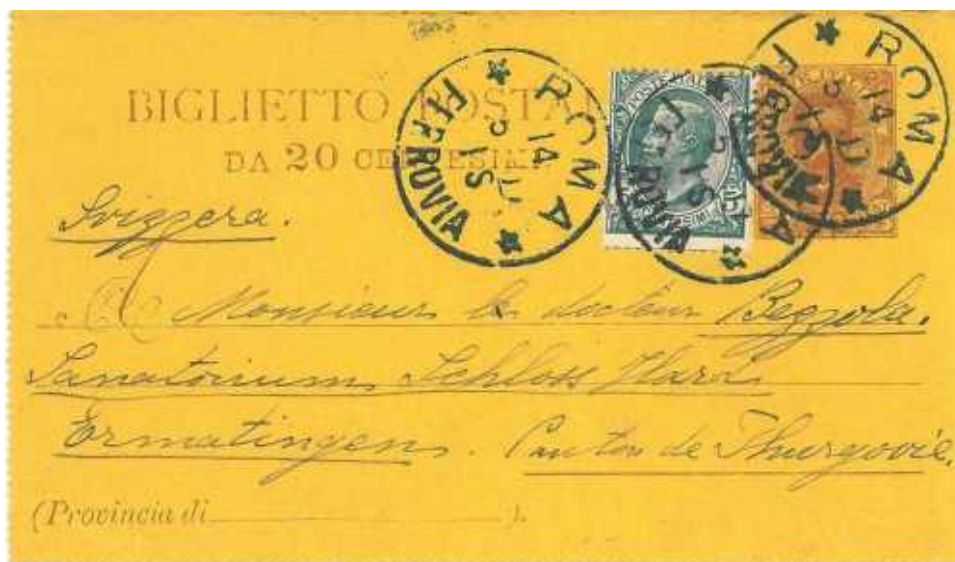 BIGLIETTO POSTA
DA 20 CENTESIMI
ROMA
FERROVIA
14
15
ROMA
FERROVIA
14
POSTE ITALIANE
FERROVIA
Svizzera.
Monsieur le docteur Bezzola.
Sanatorium Schloss Hard
Ermatingen. Canton de Thurgovie.
(Provincia di ).